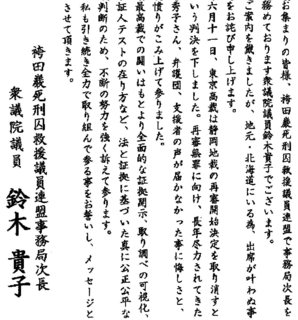 お集まりの皆様、袴田巌死刑囚救援議員連盟で事務局次長を
務めております衆議院議員鈴木貴子でございます。
ご案内を戴きましたが、地元・北海道にいる為、出席が叶わぬ事
をお詫び申し上げます。
六月十一日、東京高裁は静岡地裁の再審開始決定を取り消すと
いう判決を下しました。再審無罪に向け、長年尽力されてきた
秀子さん、弁護団、支援者の声が届かなかった事に悔しさと、
憤りがこみ上げて参りました。
最高裁での闘いはもとより全面的な証拠開示、取り調べの可視化、
証人テストの在り方など、法と証拠に基づいた真に公正公平な
判断のため、不断の努力を強く訴えて参ります。
私も引き続き全力で取り組んで参る事をお誓いし、メッセージと
させて頂きます。
袴田巌死刑囚救援議員連盟事務局次長
衆議院議員 鈴木貴子